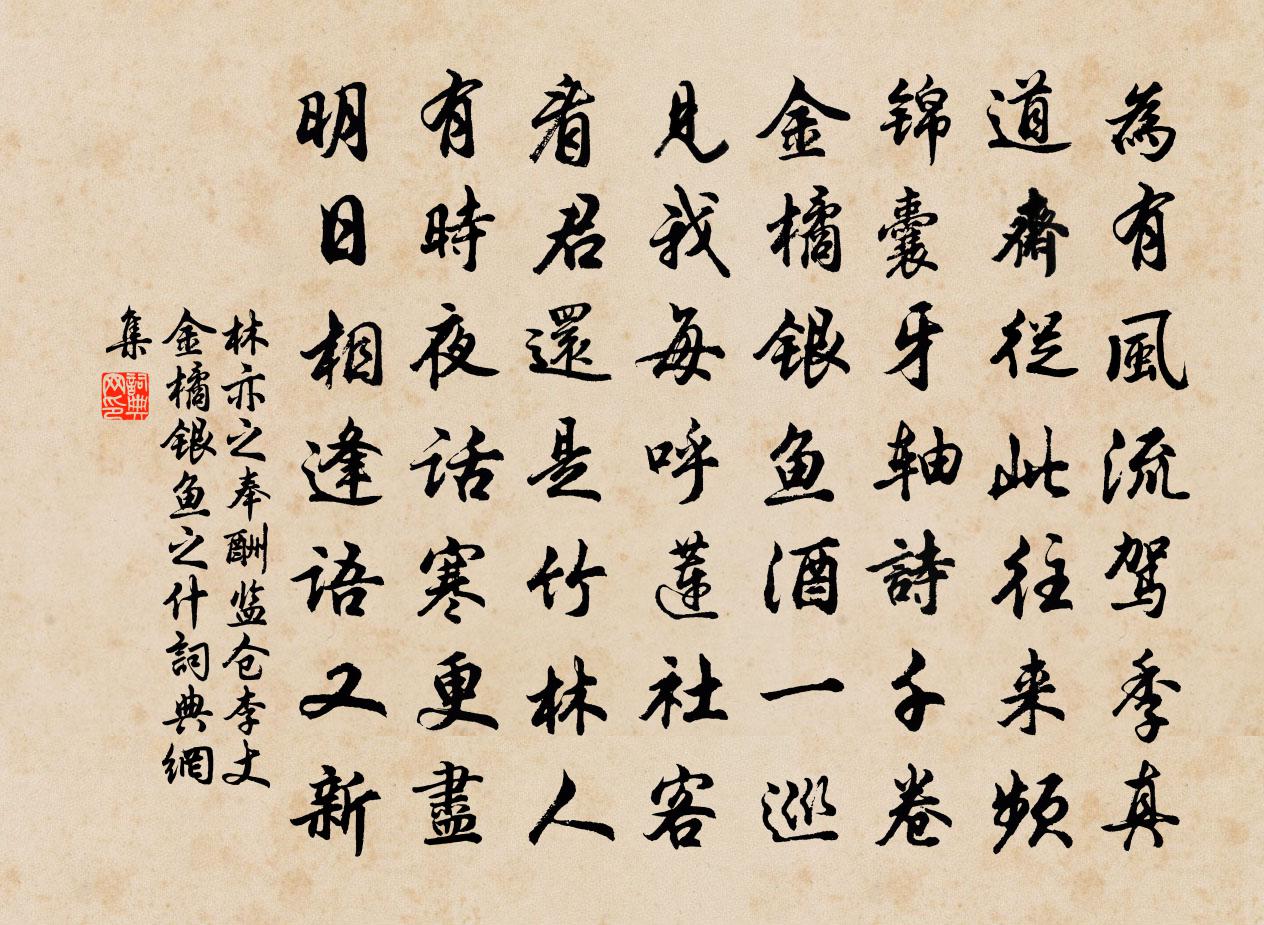 為有風流駕季真
道齋從此往来頻
锦囊牙軸詩千卷
金橘银鱼酒一巡
見我每呼蓮社客
看君還是竹林人
有時夜話寒更盡
明日相逢語又新
林亦之奉酬监仓李丈
金橘银鱼之什詞典網
集
詞典网印